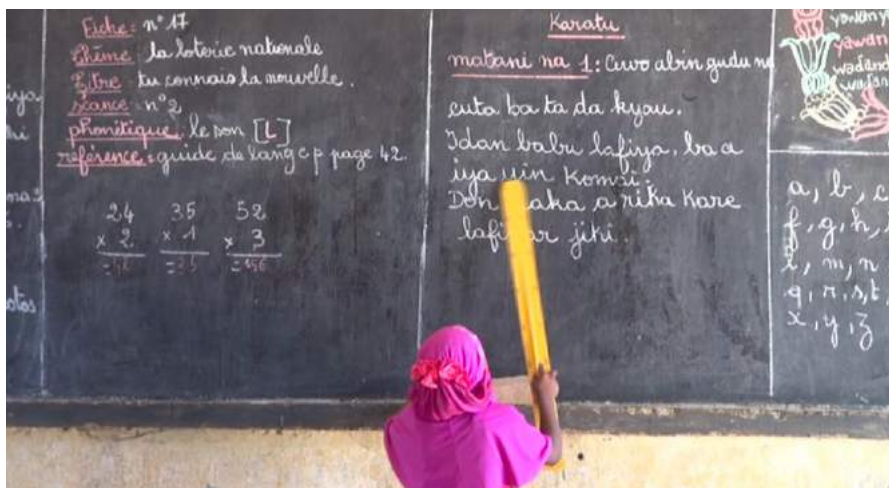 Fiche: n° 17
Thème: la loterie nationale
Titre: tu connais la nouvelle.
Séance: n° 2
phonétique: le son [L]
référence: guide de lang cp page 42.
24 35 52
× 2 × 1 × 3
= 35 = 156
Karatu
matani na 1: Ciwo abin gudu ne
cuta ba ta da kyau.
Idan babu lafiya, ba a
iya yin komi.
Don haka a rika kare
lafiyar jiki.
yawan
a, b, c
f, g, h,
l, m, n
q, r, s, t
x, y, z